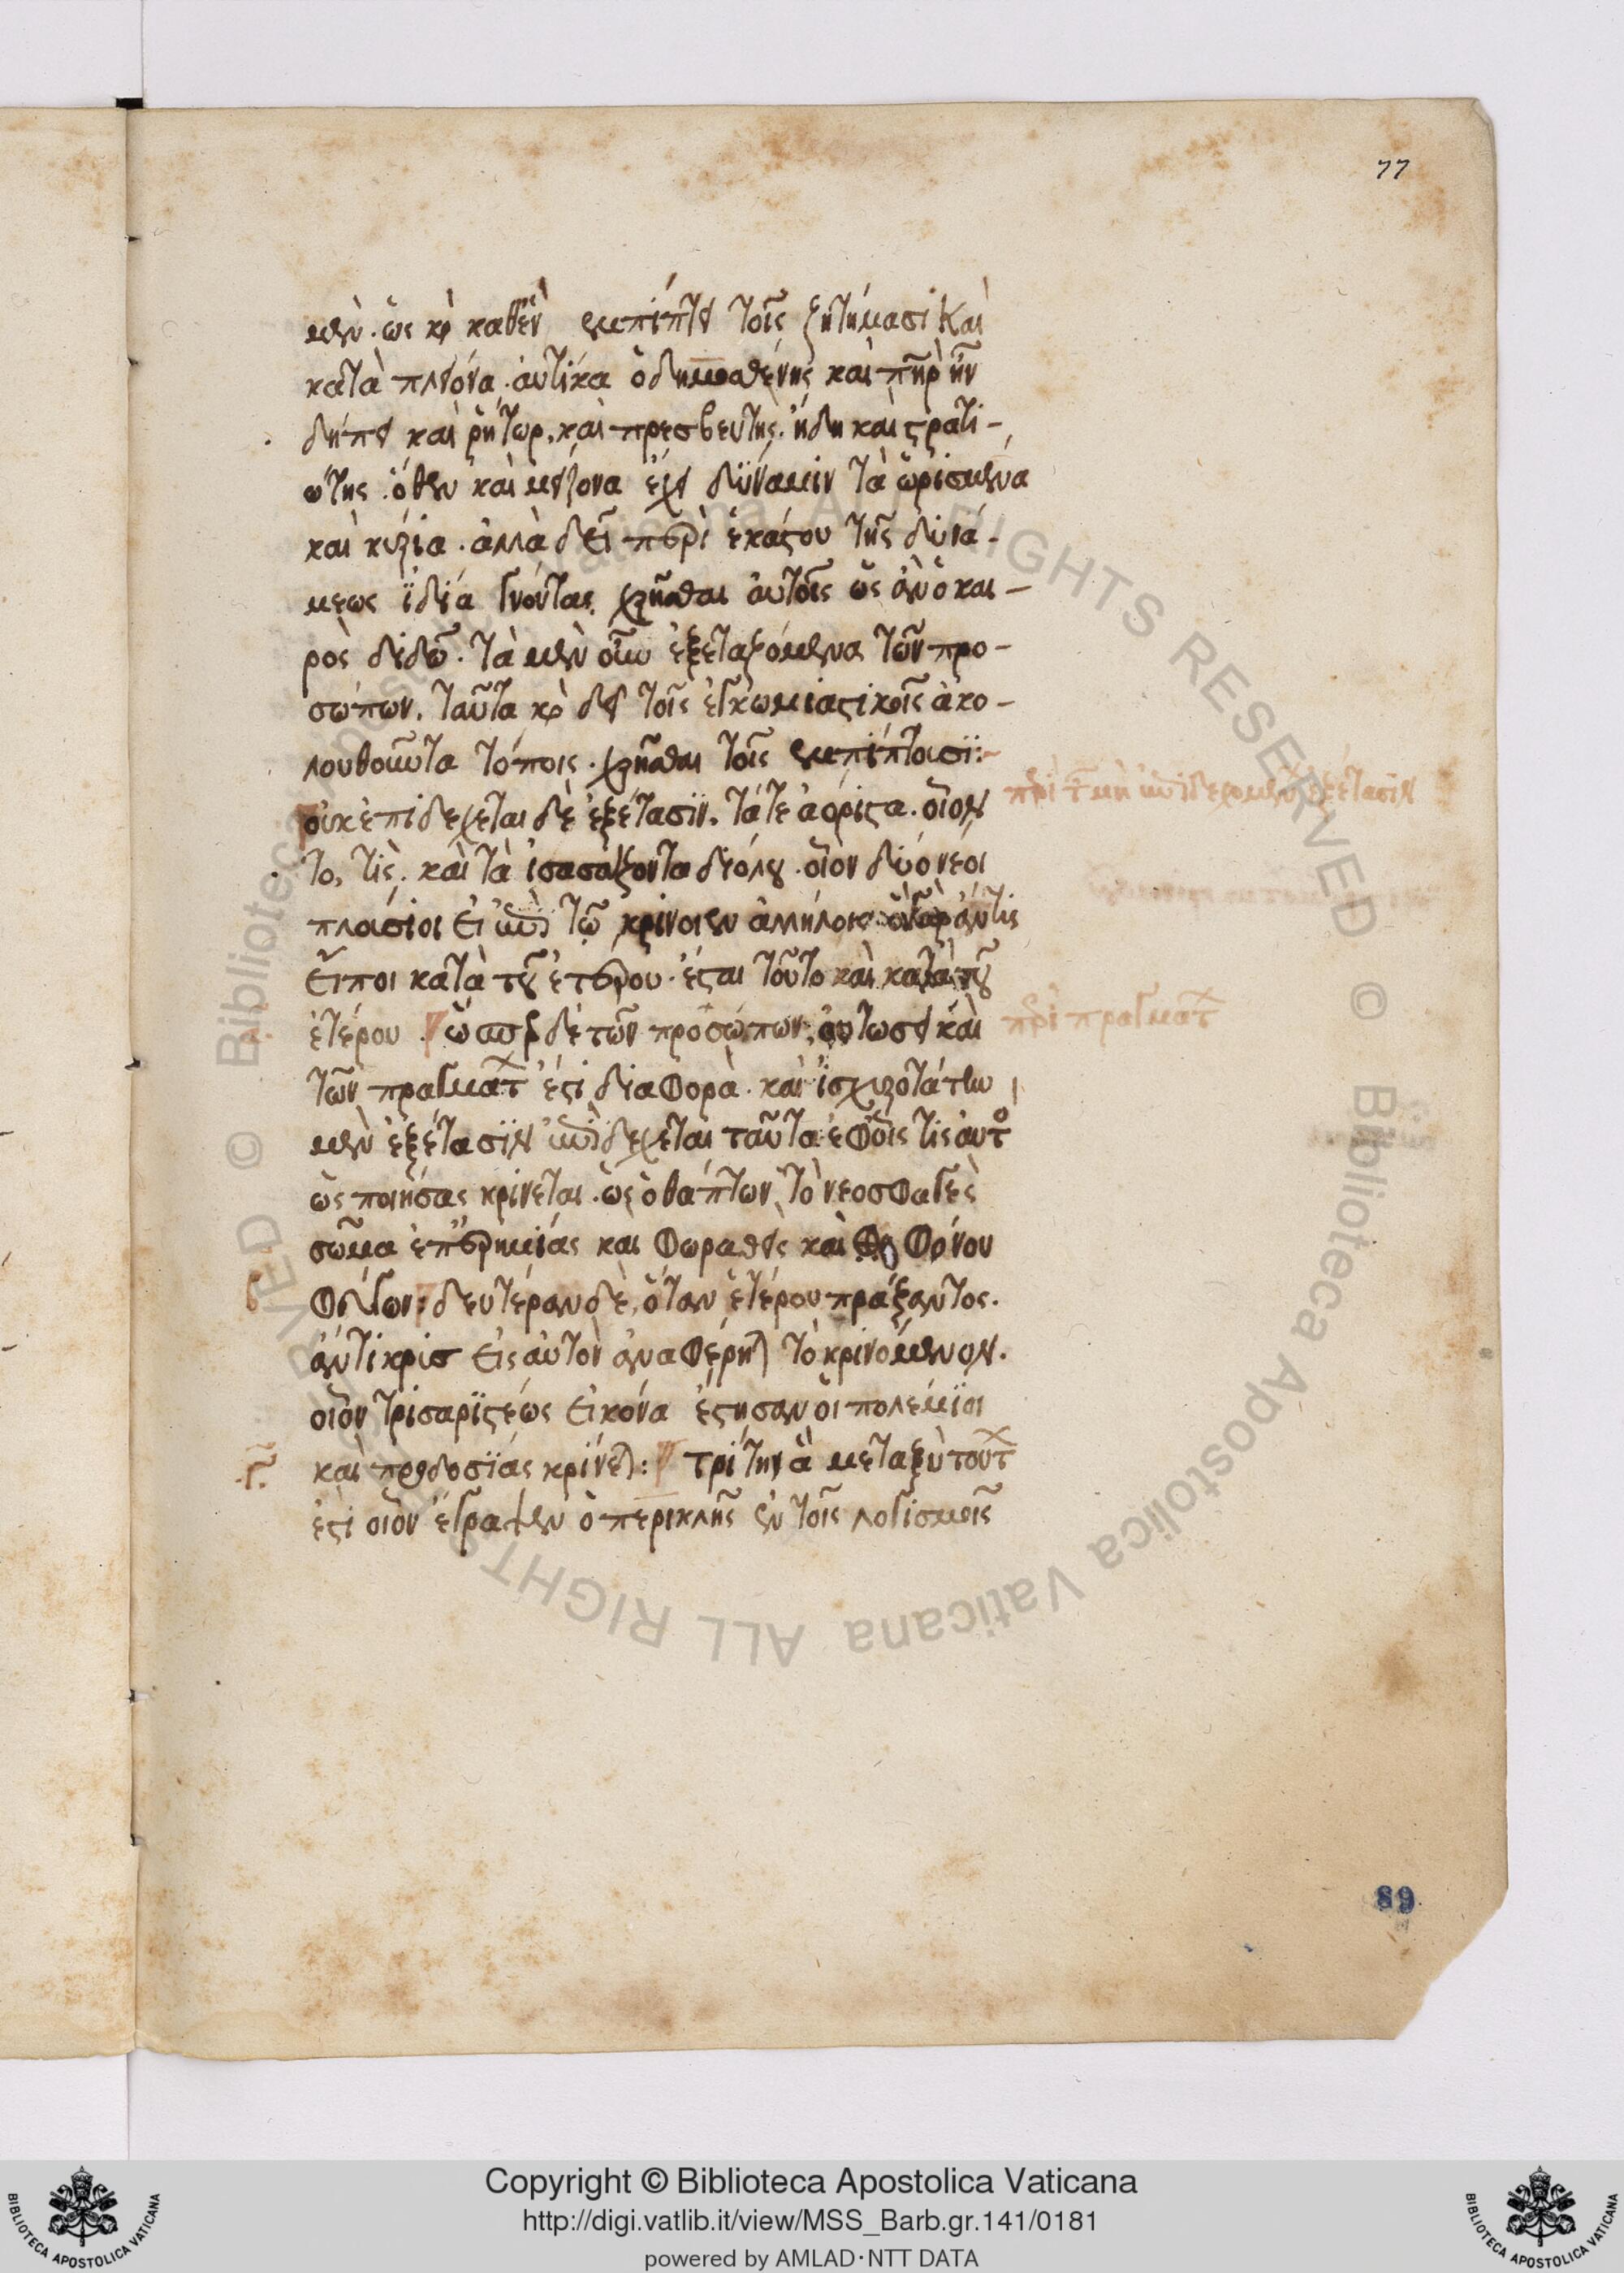 77
μὲν. ὡς καὶ καθἓν ἐμπίπτει τοῖς ζητήμασι καὶ
κατὰ πλείονα. αὐτίκα ὁ δημοσθένης καὶ πατὴρ ἦν
καὶ ῥήτωρ. καὶ πρεσβευτής. ἤδη καὶ στρατι-
ώτης. ὅθεν καὶ μείζονα ἔχει δύναμιν τὰ ὡρισμένα
καὶ κύρια. ἀλλὰ δεῖ περὶ ἑκάστου τῆς δυνά-
μεως ἰδίᾳ γνόντας χρῆσθαι αὐτοῖς ὡς ἂν ὁ και-
ρὸς διδῶ. τὰ μὲν οὖν ἐξεταζόμενα τῶν προ-
σώπων. ταῦτα καὶ δεῖ τοῖς ἐγκωμιαστικοῖς ἀκο-
λουθοῦντα τόποις. χρῆσθαι τοῖς ἐμπίπτουσι:-
οὐκ ἐπιδέχεται δὲ ἐξέτασιν. τά τε ἀόριστα. οἷον
τὸ, τίς. καὶ τὰ ἰσάζοντα διόλου. οἷον δύο νέοι
πλούσιοι εἰ ἐπὶ τῷ κρίνοιεν ἀλλήλους ὃ γὰρ ἄν τις
εἴποι κατὰ τοῦ ἑτέρου. ἔσται τοῦτο καὶ κατὰ τοῦ
ἑτέρου. ὥσπερ δὲ τῶν προσώπων, οὕτωσι καὶ
τῶν πραγμάτων ἐστὶ διαφορὰ. καὶ ἰσχυροτάτην
μὲν ἐξέτασιν ἐπιδέχεται ταῦτα ἐφ' οἷς τις αὐτὸς
ὡς ποιήσας κρίνεται. ὡς ὁ θάπτων τὸ νεοσφαγὲς
σῶμα ἐπ' ἐρημίας καὶ φωραθεὶς καὶ φόνου
φεύγων: δευτέραν δὲ, ὅταν ἑτέρου πράξαντος.
ἄντικρυς εἰς αὐτὸν ἀναφέρηται τὸ κρινόμενον.
οἷον τρισαριστέως εἰκόνα ἔστησαν οἱ πολέμιοι
καὶ προδοσίας κρίνεται: τρίτην ἃ μεταξὺ τούτων
ἐστὶ οἷον ἔγραψεν ὁ περικλῆς ἐν τοῖς λογισμοῖς
περὶ τῶν μὴ ἐπιδεχομένων ἐξέτασιν
περὶ πραγμάτων
β
γ
89
© Biblioteca Apostolica Vaticana ALL RIGHTS RESERVED © Biblioteca Apostolica Vaticana ALL RIGHTS RESERVED
Copyright © Biblioteca Apostolica Vaticana
http://digi.vatlib.it/view/MSS_Barb.gr.141/0181
powered by AMLAD·NTT DATA
BIBLIOTECA APOSTOLICA VATICANA
BIBLIOTECA APOSTOLICA VATICANA